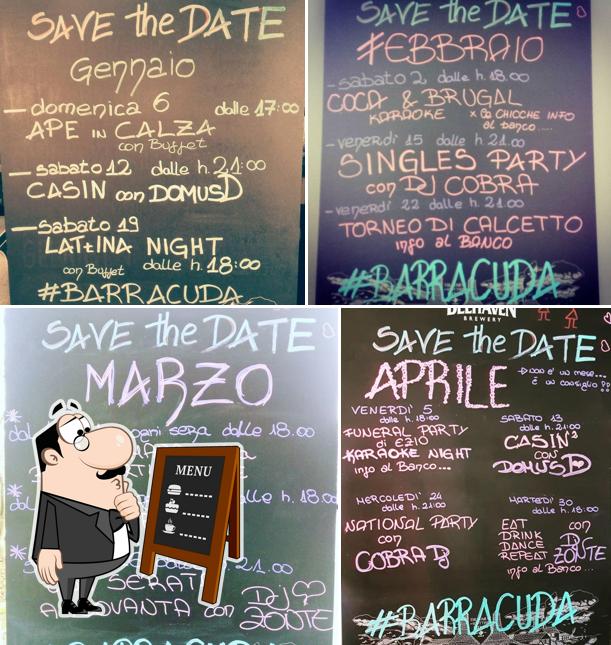 SAVE the DATE
Gennaio
— domenica 6 dalle 17:00
APE IN CALZA
con Buffet
— sabato 12 dalle h. 21:00
CASIN con DOMUSD
— sabato 19
LATINA NIGHT
con Buffet dalle h. 18:00
#BARRACUDA
SAVE the DATE
FEBBRAIO
- sabato 2 dalle h. 18.00
COCA & BRUGAL
KARAOKE x Go CHICCHE INFO
al banco....
- venerdì 15 dalle h. 21.00
SINGLES PARTY
con DJ COBRA
- venerdì 22 dalle h. 21.00
TORNEO DI CALCETTO
info al BANCO
#BARRACUDA
SAVE the DATE
MARZO
ogni sera dalle 18.00
dal
alle h. 18.00
MENU
21.00
SERAT
A NOVANTA con DJ
ZONTE
BELHAVEN
BREWERY
SAVE the DATE
APRILE
→ non è un mese...
è un consiglio!!
VENERDI' 5
dalle h. 18:00
FUNERAL PARTY
di EZIO
KARAOKE NIGHT
info al Banco...
SABATO 13
dalle h. 21:00
CASIN²
CON
DOMUSD
MERCOLEDI' 24
dalle h. 21:00
NATIONAL PARTY
con
COBRA Dj
MARTEDI' 30
dalle h. 18:00
EAT con
DRINK DJ
DANCE ZONTE
REPEAT
info al Banco...
#BARRACUDA